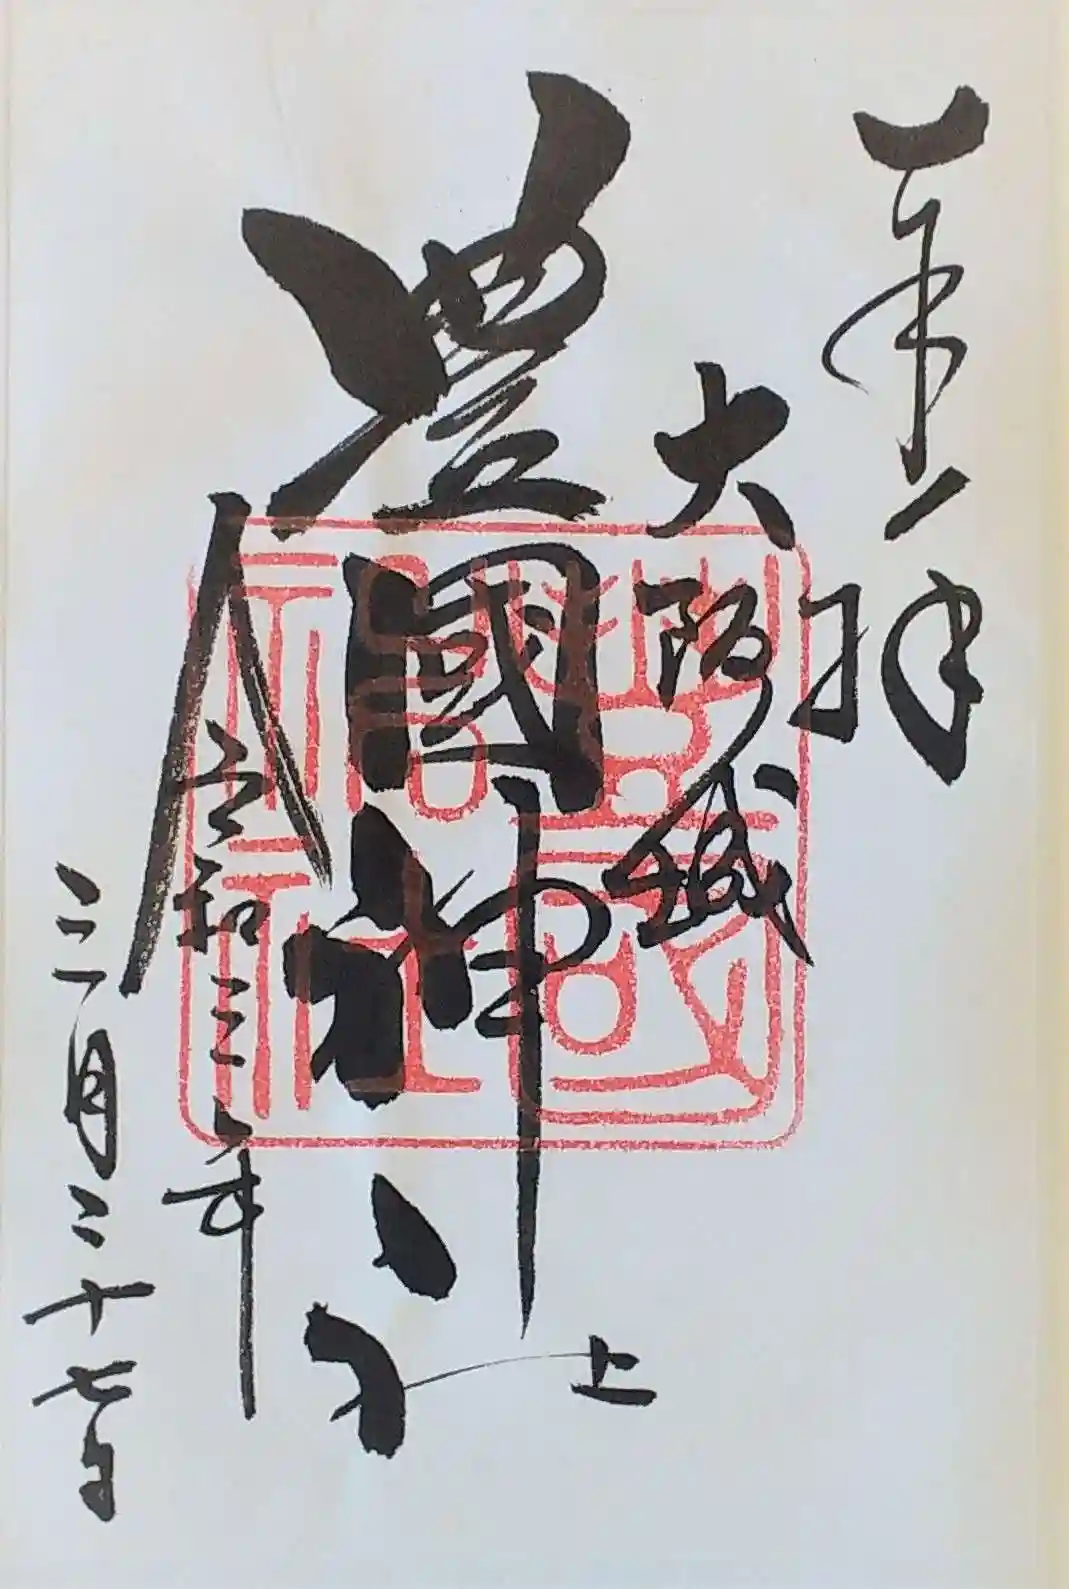 奉拝
大阪城
豊國神社
令和三年
三月二十七日
豊國神社印